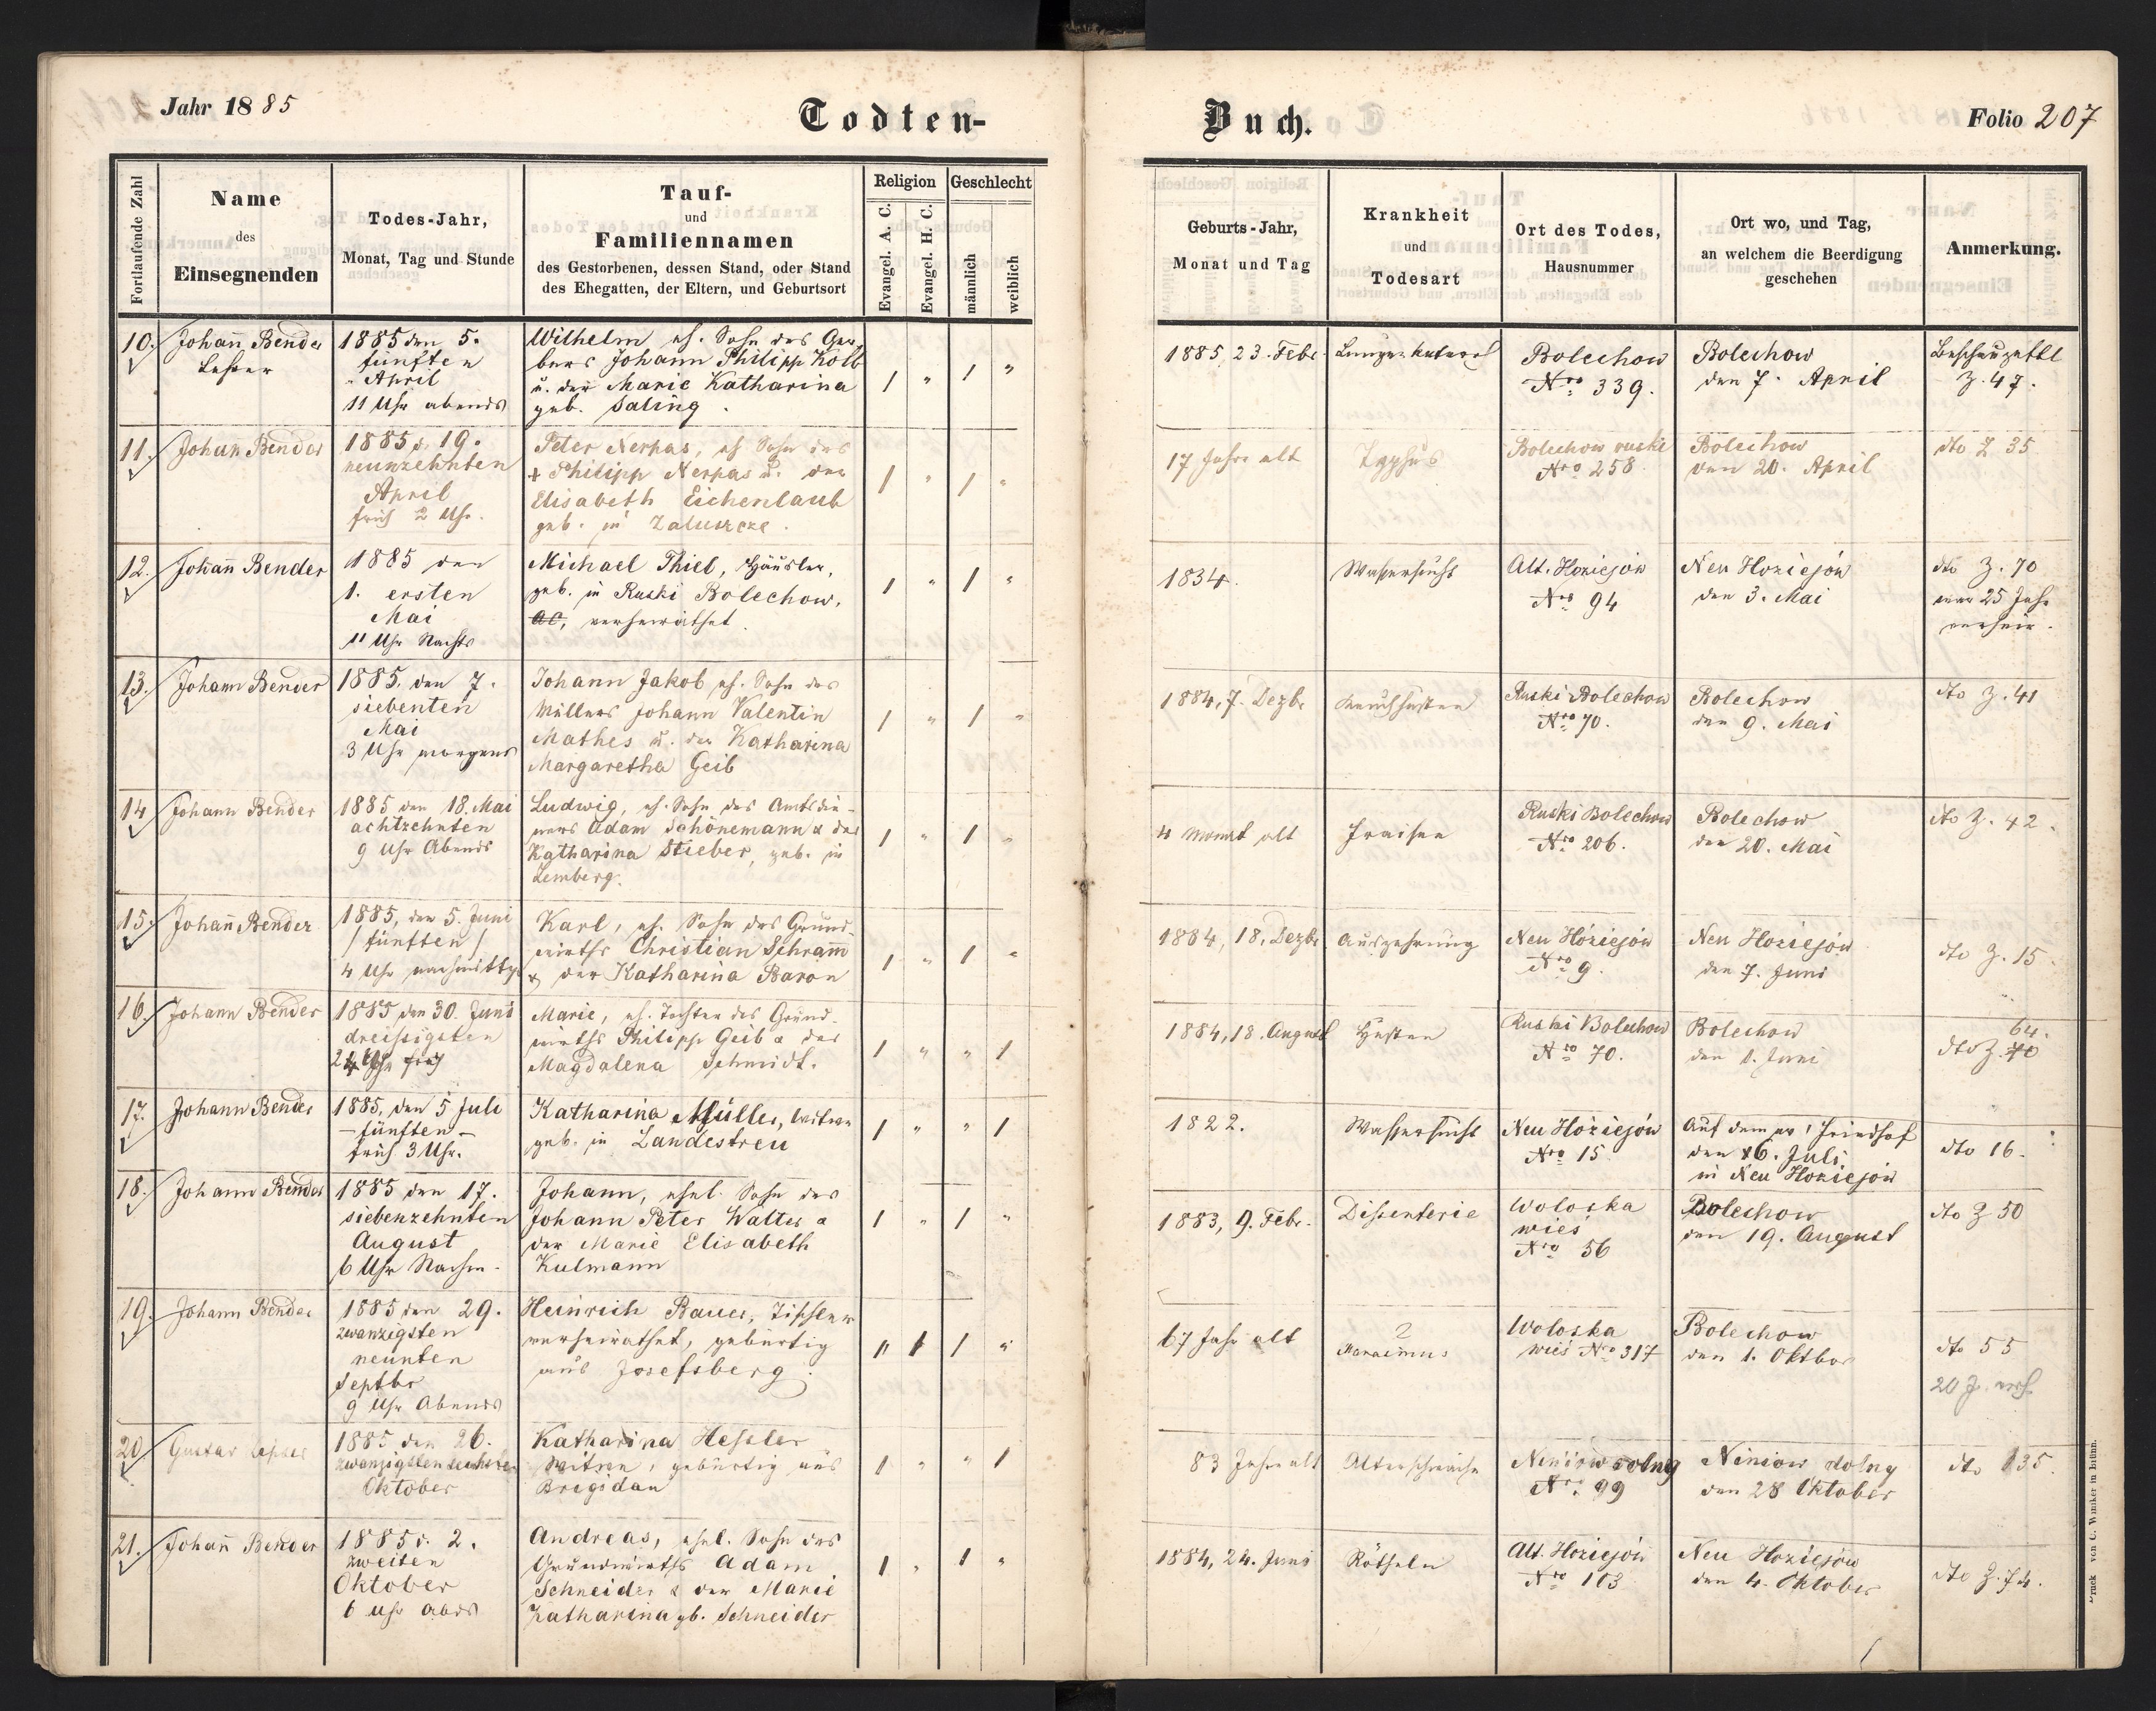 Jahr 1885
Todten-
Buch.
Folio 207
Fortlaufende Zahl
Name
des
Einsegnenden
Todes-Jahr,
Monat, Tag und Stunde
Tauf-
und
Familiennamen
des Gestorbenen, dessen Stand, oder Stand
des Ehegatten, der Eltern, und Geburtsort
Religion
Evangel. A. C.
Evangel. H. C.
Geschlecht
männlich
weiblich
Geburts-Jahr,
Monat und Tag
Krankheit
und
Todesart
Ort des Todes,
Hausnummer
Ort wo, und Tag,
an welchem die Beerdigung
geschehen
Anmerkung.
10.
Johañ Bender
Lehrer
1885 den 5.
fünften
April
11 Uhr abends
Wilhelm eh. Sohn des Ger-
bers Johann Philipp Kolb
u. der Marie Katharina
geb. Saling.
1 " 1 "
1885, 23. Febr.
Lungenkatarrh
Bolechow
Nro 339.
Bolechow
den 7. April
Beschauzettl
Z. 47.
11.
Johañ Bender
1885 d. 19.
neunzehnten
April
früh 2 Uhr.
Peter Nerpas, eh Sohn des
+ Philipp Nerpas u. der
Elisabeth Eichenlaub
geb. in Zaluszcze.
1 " 1 "
17 Jahre alt
Typhus
Bolechow ruski
Nro 258.
Bolechow
den 20. April
dto Z 35
12.
Johañ Bender
1885 den
1. ersten
Mai
11 Uhr Nachts
Michael Thiel, Häusler,
geb. in Ruski Bolechow,
AC, verheirathet.
1 " 1 "
1834.
Wassersucht
Alt. Hoziejów
Nro 94
Neu Hoziejów
den 3. Mai
dto Z. 70
war 25 Jahr
verheir.
13.
Johann Bender
1885. den 7.
siebenten
Mai
3 Uhr morgens
Johann Jakob, eh. Sohn des
Müllers Johann Valentin
Mathes u. der Katharina
Margaretha Geib
1 " 1 "
1884, 7. Dezbr
Keuchhusten
Ruski Bolechow
Nro 70.
Bolechow
den 9. Mai
dto Z. 41
14
Johann Bender
1885 den 18. Mai
achtzehnten
9 Uhr Abends
Ludwig, eh. Sohn des Amtsdie-
ners Adam Schönemann & der
Katharina Stieber, geb. in
Lemberg.
1 " 1 "
4 Monat alt
Fraisen
Ruski Bolechow
Nro 206.
Bolechow
den 20. Mai
dto Z. 42.
15.
Johañ Bender
1885, den 5. Juni
/ fünften /
4 Uhr nachmittgs
Karl, eh. Sohn des Grund-
wirths Christian Schram̃
& der Katharina Baron
1 " 1 "
1884, 18. Dezbr
Auszehrung
Neu Hoziejów
Nro 9.
Neu Hoziejów
den 7. Juni
dto Z. 15.
16.
Johann Bender
1885 den 30. Juni
dreissigsten
2 Uhr früh
Marie, eh. Tochter des Grund-
wirths Philipp Geib & der
Magdalena Schmidt.
1 " " 1
1884, 18. August
Husten
Ruski Bolechow
Nro 70.
Bolechow
den 1. Juni
64.
dto Z. 70
17.
Johann Bender
1885, den 5 Juli
- fünften -
früh 3 Uhr.
Katharina Müller, Witwe
geb. in Landestreu
1 " " 1
1822.
Wassersucht
Neu Hoziejów
Nro 15
Auf dem ev. Friedhof
den 6. Juli
in Neu Hoziejów
dto 16.
18.
Johann Bender
1885 den 17.
siebenzehnten
August
6 Uhr Nachm.
Johann, ehel. Sohn des
Johann Peter Walter &
der Marie Elisabeth
Kulmann
1 " 1 "
1883, 9. Febr.
Dissenterie
Woloska
wies
Nro 56
Bolechow
den 19. August
dto Z 50
19.
Johann Bender
1885 den 29.
zwanzigsten
neunten
Septbr
9 Uhr Abends
Heinrich Bauer, Tischler
verheirathet, gebürtig
aus Josefsberg.
1 "
67 Jahr alt
2
Marasmus
Woloska
wies Nro 317
Bolechow
den 1. Oktbor
dto 55
20 J. verh.
20
Gustav
1885 den 26.
zwanzigsten sechsten
Oktober
Katharina Hessler
Witwe, gebürtig aus
Brigidau
1 " " 1
83 Jahre alt
Altersschwäche
Niniow dolny
Nro 99
Niniow dolny
den 28 Oktober
dto 135.
21.
Johañ Bender
1885 d. 2.
zweiten
Oktober
6 Uhr abds
Andreas, ehel. Sohn des
Grundwirths Adam
Schneider & der Marie
Katharina gb. Schneider
1 " 1 "
1884, 24. Juni
Rötheln
Alt. Hoziejów
Nro 103
Neu Hoziejów
den 4. Oktober
dto Z. 74.
Druck von C. Winiker in Brünn.